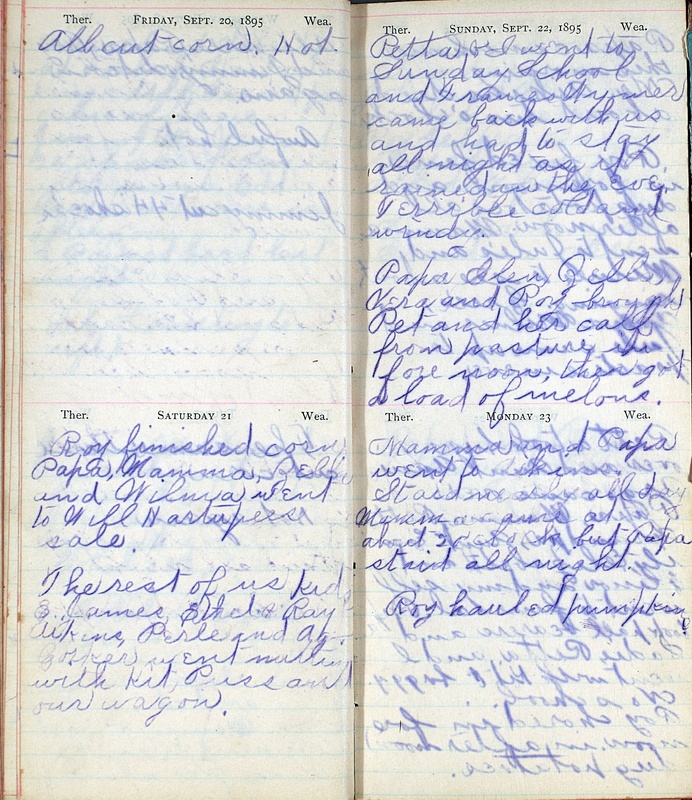 Ther. FRIDAY, SEPT. 20, 1895 Wea.
All cut corn. Hot.
Ther. SATURDAY 21 Wea.
Roy finished corn
Papa, Mamma,
and Wilma went
to Will
sale.
The rest of us kids
E. James, Ethel & Ray
Perle and
went nutting
with Kit, Puss and
our wagon.
Ther. SUNDAY, SEPT. 22, 1895 Wea.
Petta & I went to
Sunday School
and Frances Wymer
came back with us
and had to stay
all night as it
rained in the Eve.
Terrible cold and
windy.
Papa Glen
Vera and Roy brought
Pet and her calf
from pasture in
fore noon, then got
a load of melons.
Ther. MONDAY 23 Wea.
Mamma and Papa
went to
Staid nearly all day
Mamma came at
about 2 o'clock but Papa
staid all night.
Roy hauled pumpkins